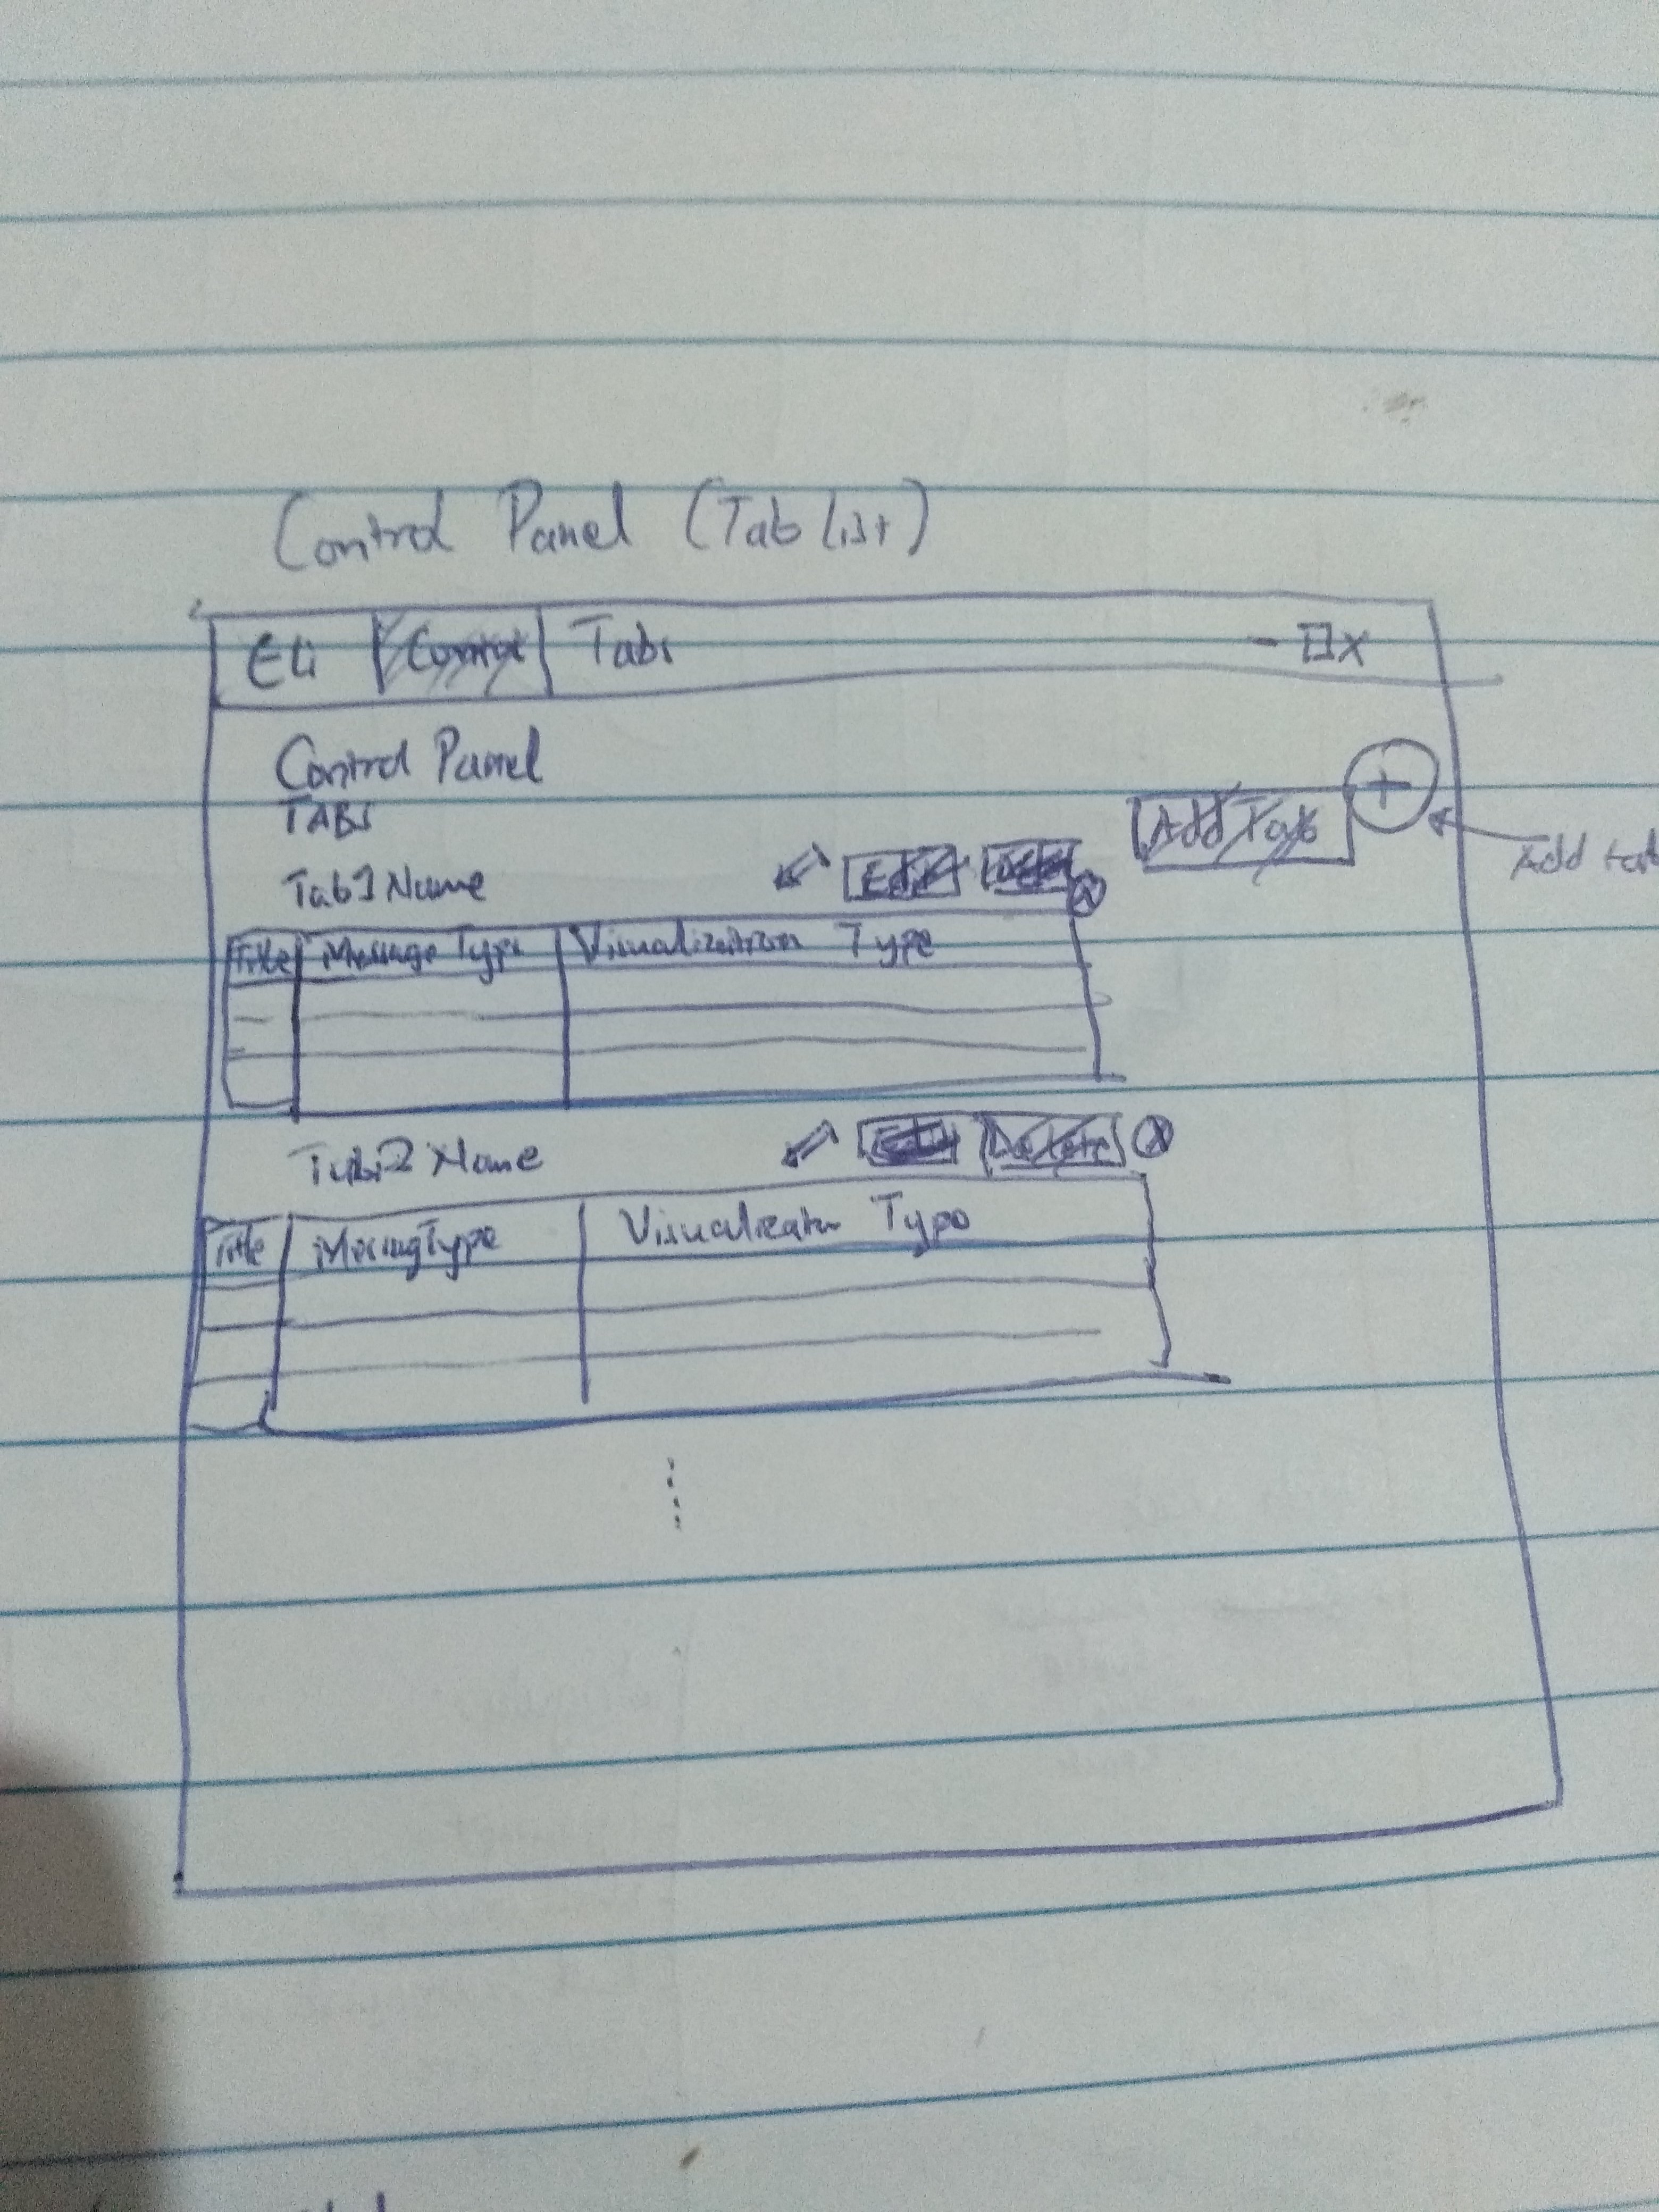 Control Panel (Tab List)
Eli Control Tabs - □ X
Control Panel
TABs
Add Tab +
Add tab
Tab1 Name Edit X
Title Message Type Visualization Type
Tab2 Name Edit Delete X
Title Message Type Visualization Type